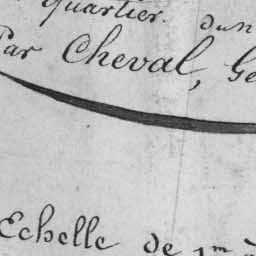 quartier. dun
Par Cheval, Gé
Echelle de 1m